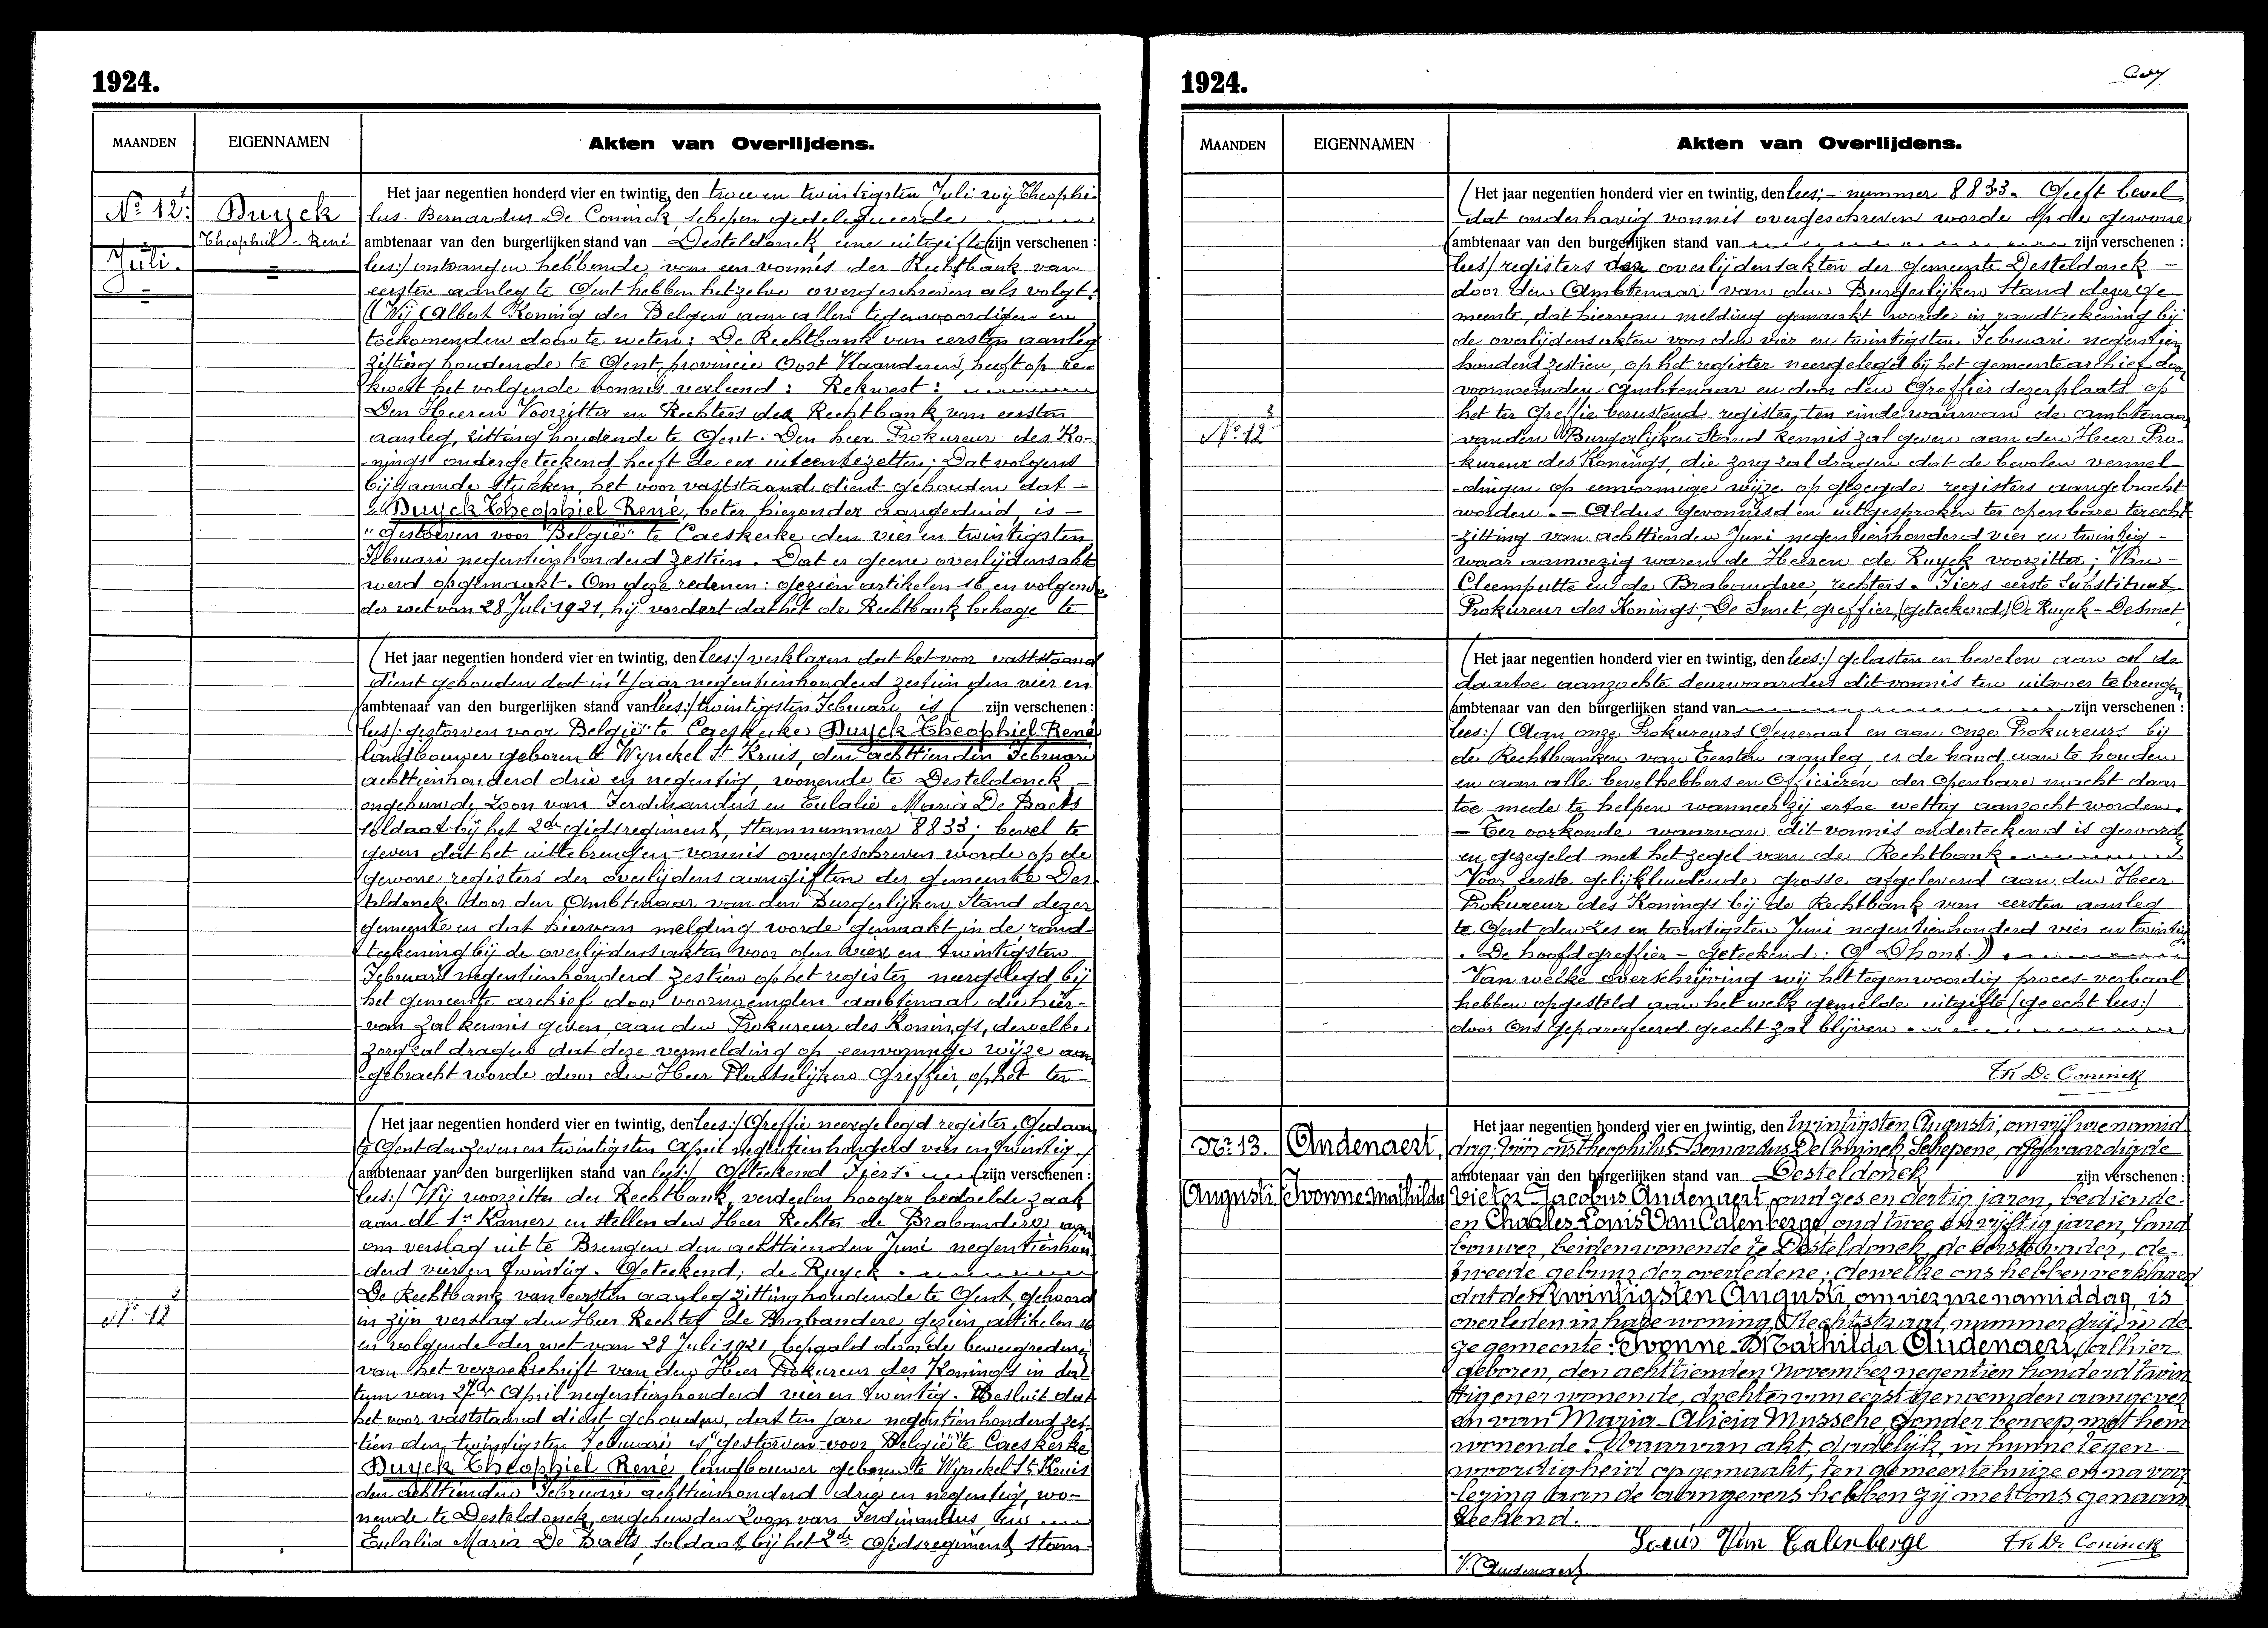 1924.
MAANDEN
EIGENNAMEN
Akten van Overlijdens.
Nº 12 1
Juli.
Duyck
Theophiel - René
Het jaar negentien honderd vier en twintig, den twee en twintigsten Juli wij Theophi-
lus Bernardus De Coninck, schepen gedelegueerde
ambtenaar van den burgerlijken stand van Desteldonck eene uitgifte (zijn verschenen:
lees:/ ontvangen hebbende van een vonnis der Rechtbank van
eersten aanleg te Gent hebben hetzelve overgeschreven als volgt:
((Wij Albert Koning der Belgen aan allen tegenwoordigen en
toekomenden doen te weten: De Rechtbank van eersten aanleg
zitting houdende te Gent, provincie Oost Vlaanderen, heeft op re-
kwest het volgende vonnis verleend: Rekwest:
Den Heeren Voorzitter en Rechters der Rechtbank van eersten
aanleg, zitting houdende te Gent. Den heer Prokureur des Ko-
nings ondergeteekend heeft de eer uiteentezetten: Dat volgens
bijgaande stukken, het voor vaststaand dient gehouden dat -
Duyck Theophiel René, beter hieronder aangeduid, is -
"gestorven voor België" te Caeskerke den vier en twintigsten
Februari negentienhonderd zestien. Dat er geene overlijdensakt
werd opgemaakt. Om deze redenen: gezien artikelen 16 en volgende
der wet van 28 Juli 1921, hij vordert dat het de Rechtbank behage te
(Het jaar negentien honderd vier en twintig, den lees:/ verklaren dat het voor vaststaand
dient gehouden dat in 't jaar negentienhonderd zestien den vier en
ambtenaar van den burgerlijken stand van lees:/ twintigsten Februari is (zijn verschenen:
lees/: gestorven voor België" te Caeskerke Duyck Theophiel René
landbouwer geboren te Wynckel St Kruis, den achttienden Februari
achttienhonderd drie en negentig, wonende te Desteldonck -
ongehuwd, zoon van Ferdinandus en Eulalie Maria De Baets
soldaat bij het 2de gidsregiment, stamnummer 8833; bevel te
geven dat het uittebrengen vonnis overgeschreven worde op de
gewone registers der overlijdens aangiften der gemeente Des-
teldonck door den Ambtenaar van den Burgerlijken Stand dezer
gemeente en dat hiervan melding worde gemaakt in de rand-
teekening bij de overlijdensakten voor den vier en twintigsten
Februari negentienhonderd zestien op het register neergelegd bij
het gemeente archief door voornoemden ambtenaar die hier-
van zal kennis geven aan den Prokureur des Konings, dewelke
zorg zal dragen dat deze vermelding op eenvormige wijze aan-
gebracht worde door den Heer Plaatselijken Greffier, op het ter-
Nº 12 2
(Het jaar negentien honderd vier en twintig, den lees:/ Greffie neergelegd register. Gedaan
te Gent den zeven en twintigsten April negentienhonderd vier en twintig.
ambtenaar van den burgerlijken stand van lees:/ Geteekend Tiers (zijn verschenen:
lees:/ Wij voorzitter der Rechtbank, verdeelen hooger bedoelde zaak
aan de 1e Kamer en stellen den Heer Rechter de Brabandere aan
om verslag uit te Brengen den achttienden Juni negentienhon-
derd vier en twintig. Geteekend: de Ruyck.
De Rechtbank van eersten aanleg zitting houdende te Gent, gehoord
in zijn verslag den Heer Rechter de Brabandere gezien artikelen 16
en volgende der wet van 28 Juli 1921, bepaald door de beweegredenen
van het verzoekschrift van den Heer Prokureur des Konings in da-
tum van 27en April negentienhonderd vier en twintig. Besluit dat
het voor vaststaand dient gehouden, dat ten jare negentienhonderd zes-
tien den twintigsten Februari is "gestorven voor België" te Caeskerke
Duyck Theophiel René landbouwer geboren te Wynckel St Kruis
den achttienden Februari achttienhonderd drie en negentig, wo-
nende te Desteldonck, ongehuwden Zoon van Ferdinandus, en
Eulalia Maria De Baets, soldaat bij het 2de Gidsregiment stam-
1924.
MAANDEN
EIGENNAMEN
Akten van Overlijdens.
Nº 12 3
(Het jaar negentien honderd vier en twintig, den lees:- nummer 8833. Geeft bevel
dat onderhavig vonnis overgeschreven worde op de gewone
(ambtenaar van den burgerlijken stand van zijn verschenen:
lees:/ registers der overlijdensakten der gemeente Desteldonck -
door den Ambtenaar van den Burgerlijken Stand dezer ge-
meente, dat hiervan melding gemaakt worde in randteekening bij
de overlijdensakten voor den vier en twintigsten Februari negentien
honderd zestien, op het register neergelegd bij het gemeente archief door
voornoemden Ambtenaar en door den Greffier dezer plaats op
het ter Greffie berustend register, ten einde waarvan de ambtenaar
van den Burgerlijken Stand kennis zal geven aan den Heer Pro-
kureur des Konings, die zorg zal dragen dat de bevolen vermel-
dingen op eenvormige wijze op gezegde registers aangebracht
worden. - Aldus gevonnisd en uitgesproken ter openbare terecht-
zitting van achttienden Juni negentienhonderd vier en twintig -
waar aanwezig waren de Heeren de Ruyck voorzitter; Van -
Cleemputte en de Brabandere, rechters. Tiers eerste Substituut
Prokureur des Konings, De Smet, greffier, (geteekend) De Ruyck - Desmet.
(Het jaar negentien honderd vier en twintig, den lees:/ gelasten en bevelen aan al de
daartoe aanzochte deurwaarders dit vonnis ten uitvoer te brengen
ambtenaar van den burgerlijken stand van zijn verschenen:
lees:/ Aan onze Prokureurs Generaal en aan onze Prokureurs bij
de Rechtbanken van Eersten aanleg er de hand aan te houden
en aan alle bevelhebbers en Officieren der Openbare macht daar-
toe mede te helpen wanneer zij ertoe wettig aanzocht worden.
- Ter oorkonde waarvan dit vonnis onderteekend is geword
en gezegeld met het zegel van de Rechtbank.
Voor eerste gelijkluidende grosse afgeleverd aan den Heer
Prokureur des Konings bij de Rechtbank van eersten aanleg
te Gent den zes en twintigsten Juni negentienhonderd vier en twintig
. De hoofdgreffier - geteekend: G Dhont.))
Van welke overschrijving wij het tegenwoordig proces-verbaal
hebben opgesteld aan het welk gemelde uitgifte (geecht lees:/
door ons geparafeerd geecht zal blijven.
Th De Coninck
Nº 13.
Augusti.
Audenaert,
Ivonne Mathilda
Het jaar negentien honderd vier en twintig, den twintigsten Augusti, om vijf ure namid-
dag, vóór ons Theophilus-Bernardus De Coninck, Schepene, afgevaardigde
ambtenaar van den burgerlijken stand van Desteldonck zijn verschenen:
Victor Jacobus Audenaert, oud zes en dertig jaren, bediende
en Charles-Louis Van Calenberge, oud twee en vijftig jaren, land-
bouwer, beiden wonende te Desteldonck, de eerste vader, de
tweede gebuur der overledene; dewelke ons hebben verklaard
dat den twintigsten Augusti, om vier ure namiddag, is
overleden in hare woning, Rechtstraat, nummer drij, in de-
ze gemeente: Ivonne-Mathilda Audenaert, alhier
geboren, den achttienden November negentien honderd twin-
tig en er wonende, dochter van eerstgenoemden aangever
en van Maria-Alicia Mussche, zonder beroep, met hem
wonende. Waarvan akt, dadelijk, in hunne tegen-
woordigheid opgemaakt, ten gemeentehuize en na voor-
lezing aan de aangevers hebben zij met ons genaam-
teekend.
Louis Van Calenberge Th De Coninck
V. Audenaert